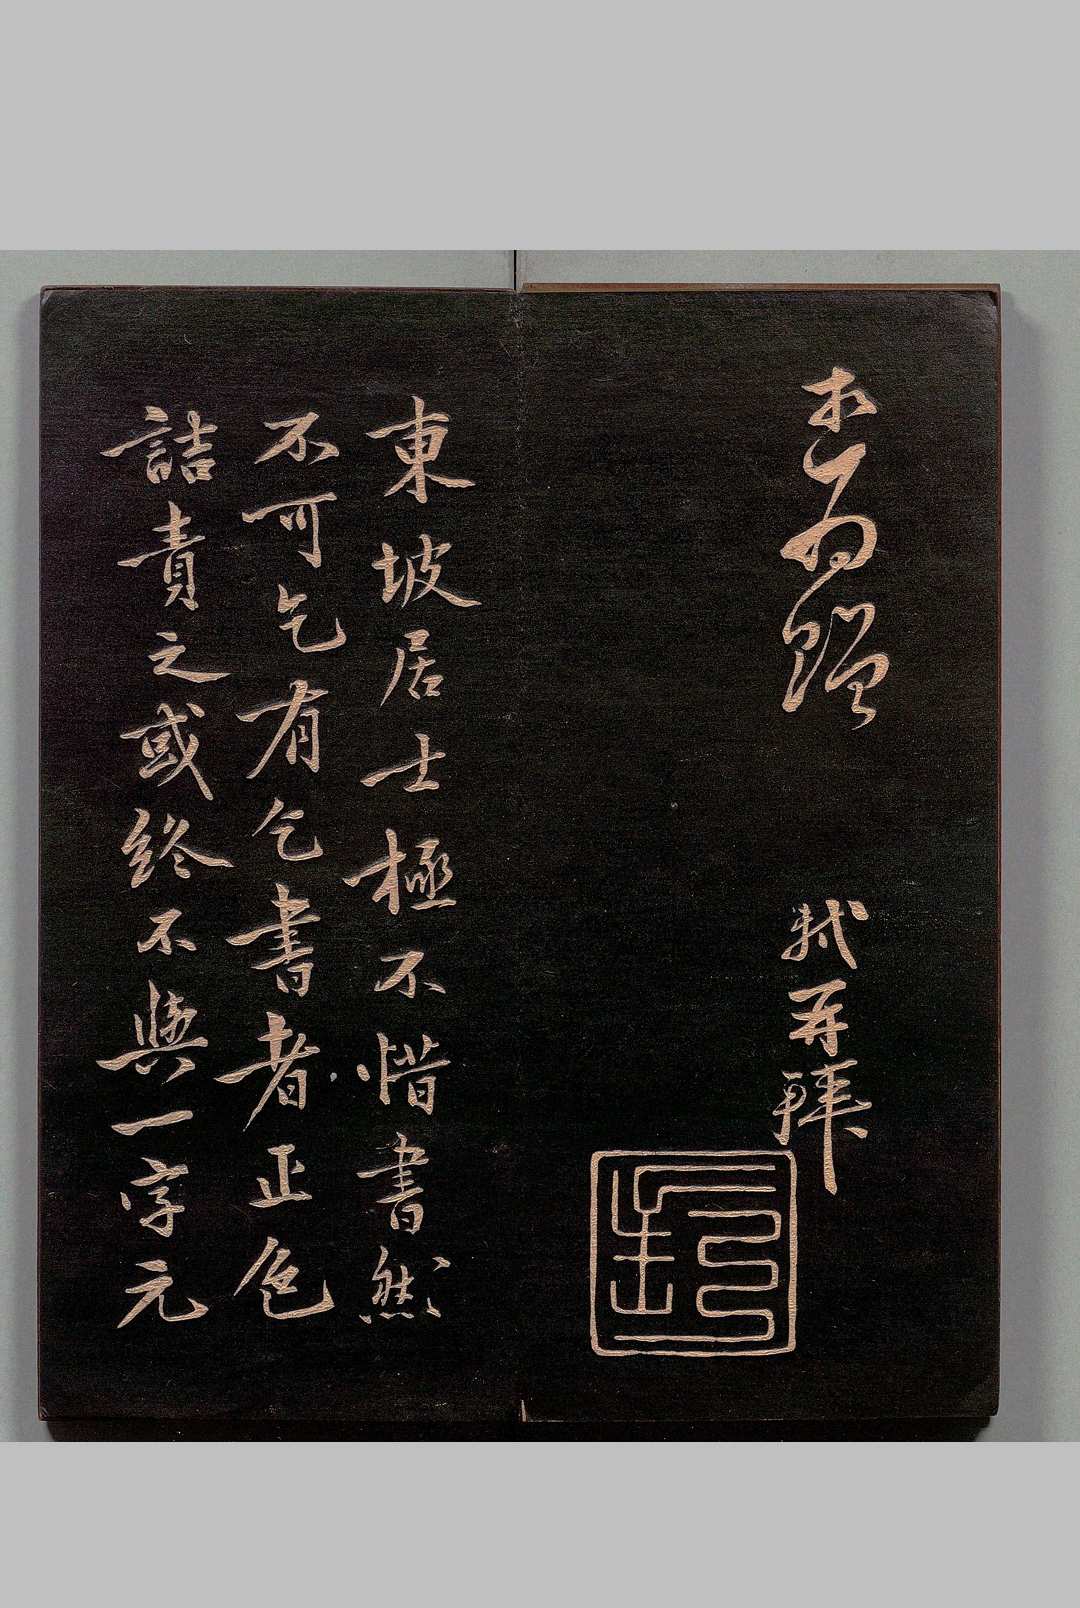 為贈
軾再拜
東坡居士極不惜書然
不可乞有乞書者正色
詰責之或終不與一字元